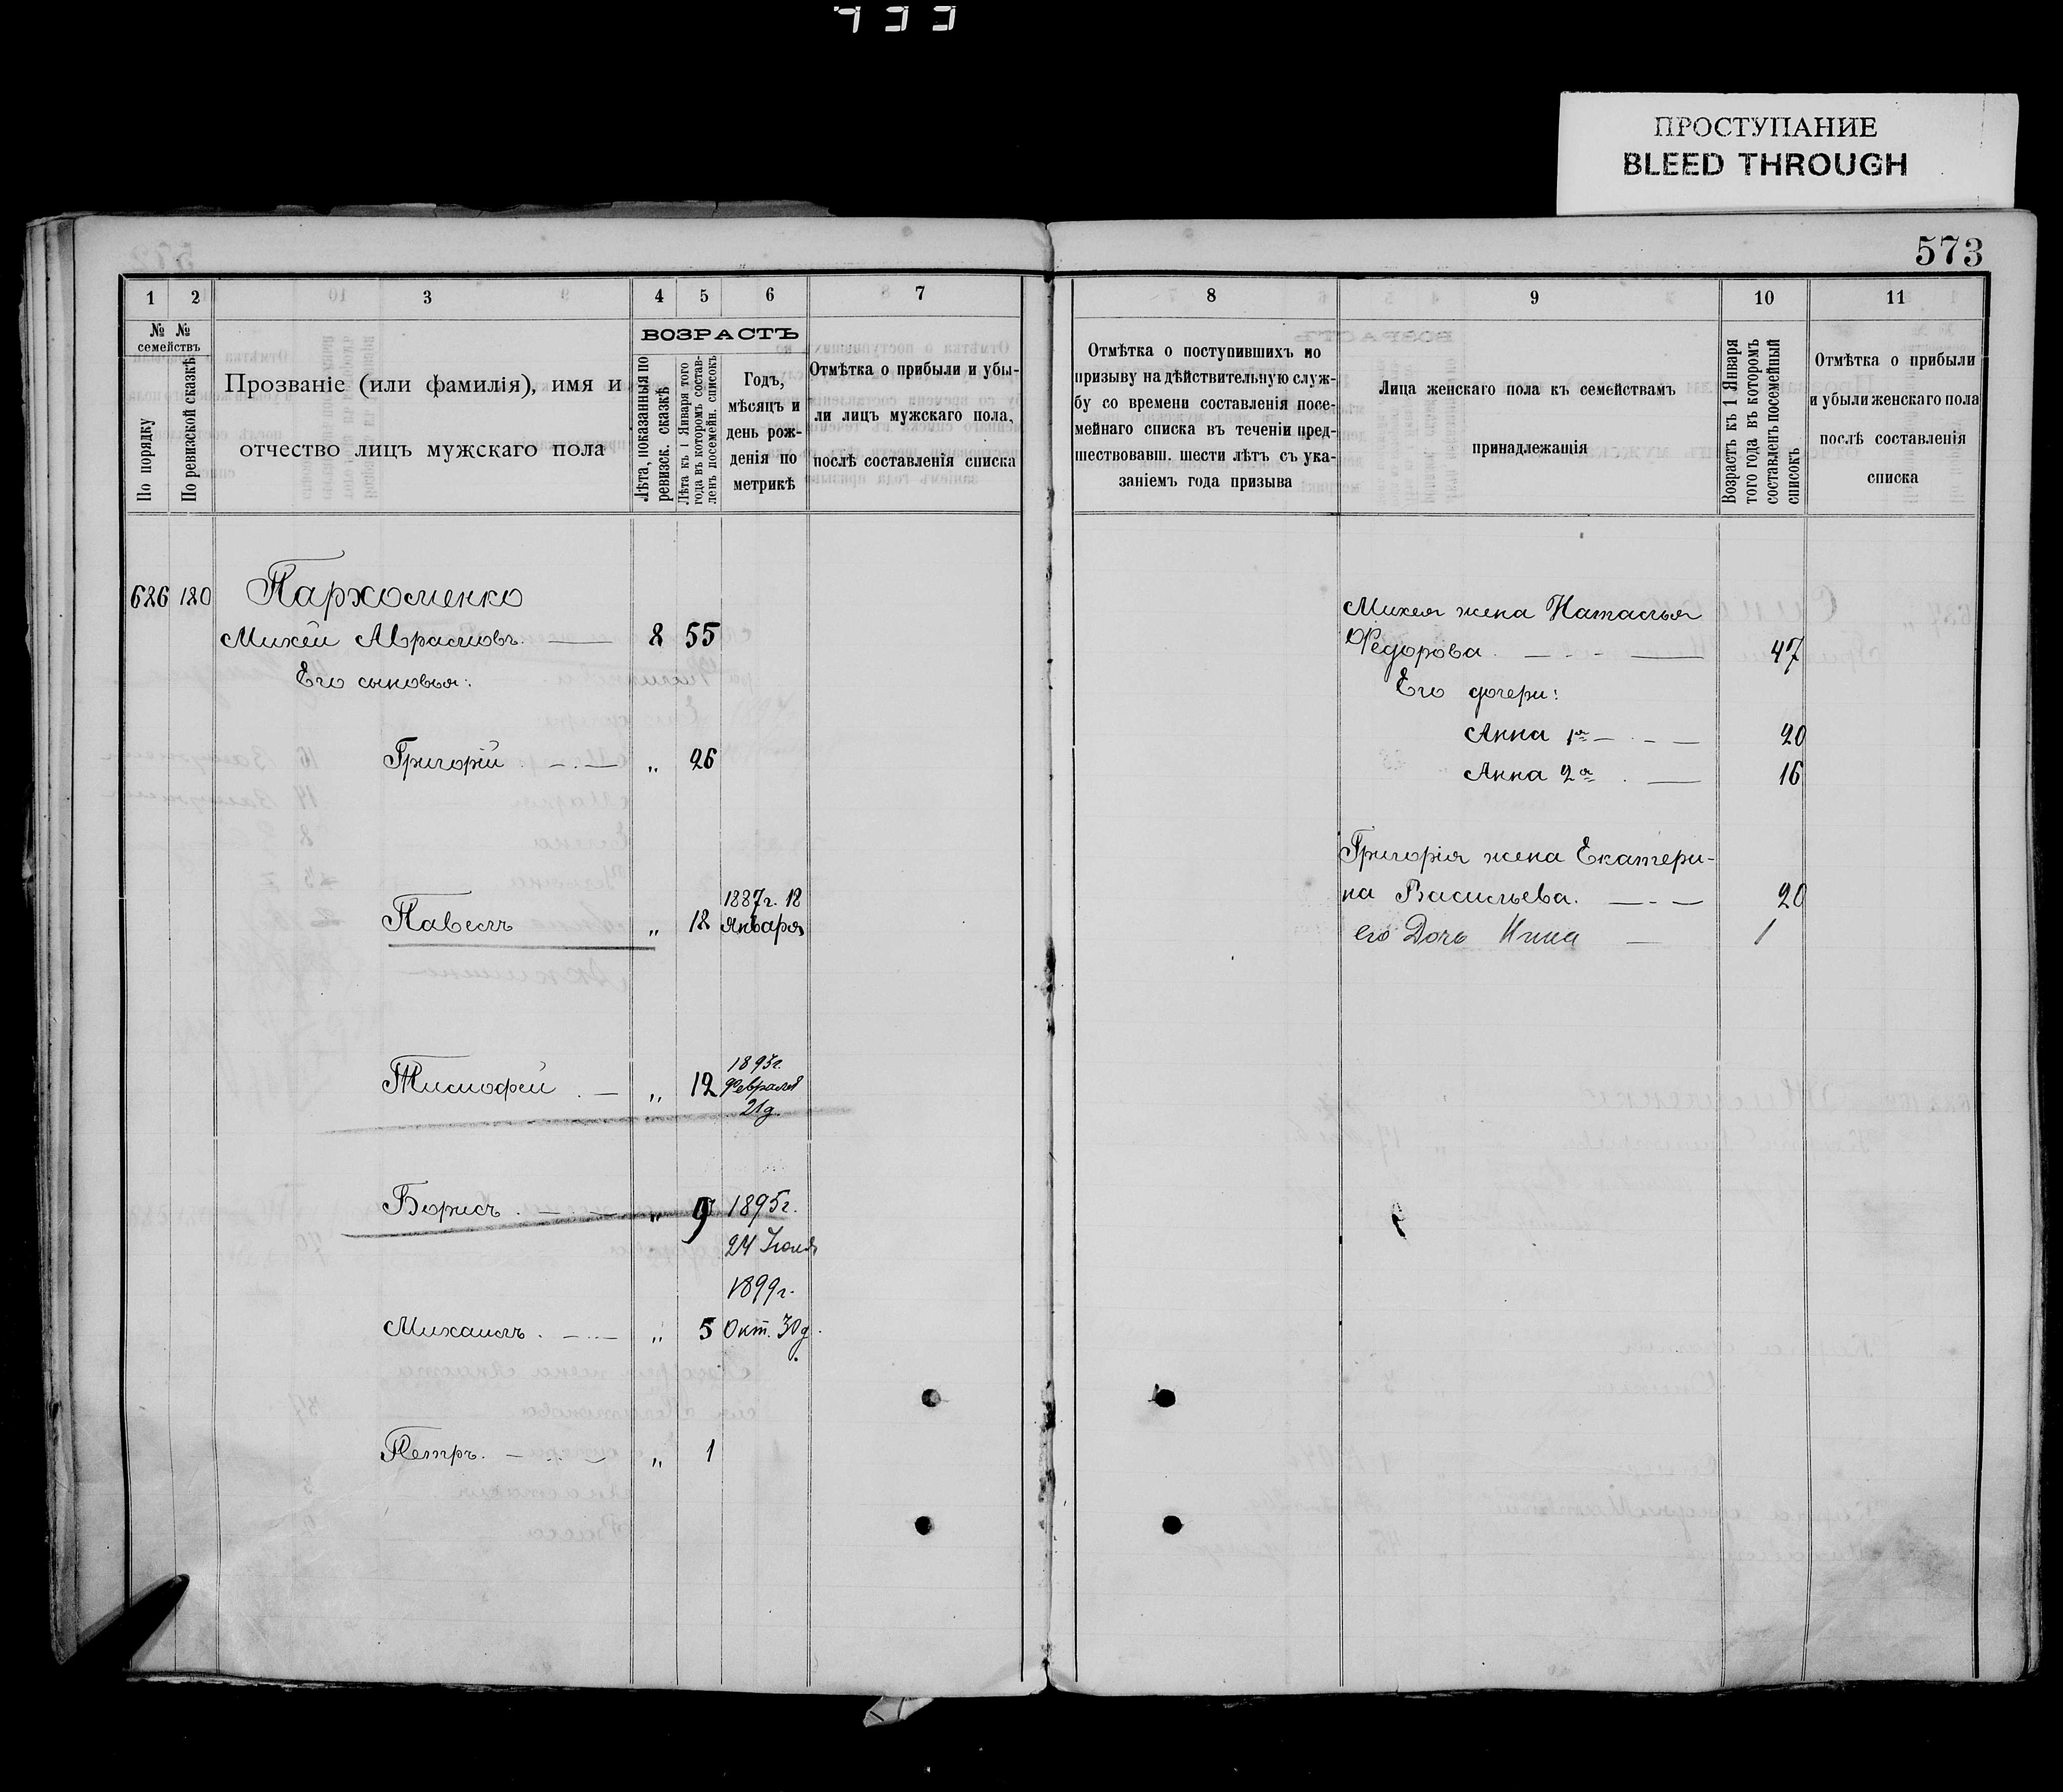 433
ПРОСТУПАНИЕ
BLEED THROUGH
573
1 2 3 4 5 6 7
№ № семействъ
По порядку
По ревизской сказкѣ
Прозваніе (или фамилія), имя и
отчество лицъ мужскаго пола
ВОЗРАСТЪ
Лѣта, показанныя по
ревизск. сказкѣ
Лѣта къ 1 Января того
года въ которомъ состав-
ленъ посемейн. списокъ
Годъ,
мѣсяцъ и
день рож-
денія по
метрикѣ
Отмѣтка о прибыли и убы-
ли лицъ мужскаго пола,
послѣ составленія списка
626 120 Пархоменко
Михей Абрамовъ. 8 55
Его сыновья:
Григорій " 26
1887г. 18
Павелъ " 18 Января
1893г.
Тимофей " 12 Февраля
21д.
Борисъ " 9 1895г.
24 Іюля
1899г.
Михаилъ " 5 Окт. 30д.
Петръ " 1
8 9 10 11
Отмѣтка о поступившихъ по
призыву на дѣйствительную служ-
бу со времени составленія посе-
мейнаго списка въ теченіи пред-
шествовавш. шести лѣтъ съ ука-
заніемъ года призыва
Лица женскаго пола къ семействамъ
принадлежащія
Возрастъ къ 1 Января
того года въ которомъ
составленъ посемейный
списокъ
Отмѣтка о прибыли
и убыли женскаго пола
послѣ составленія
списка
Михея жена Наталья
Федорова 47
Его дочери:
Анна 1я 20
Анна 2я 16
Григорія жена Екатери-
на Васильева. 20
его Дочь Нина 1